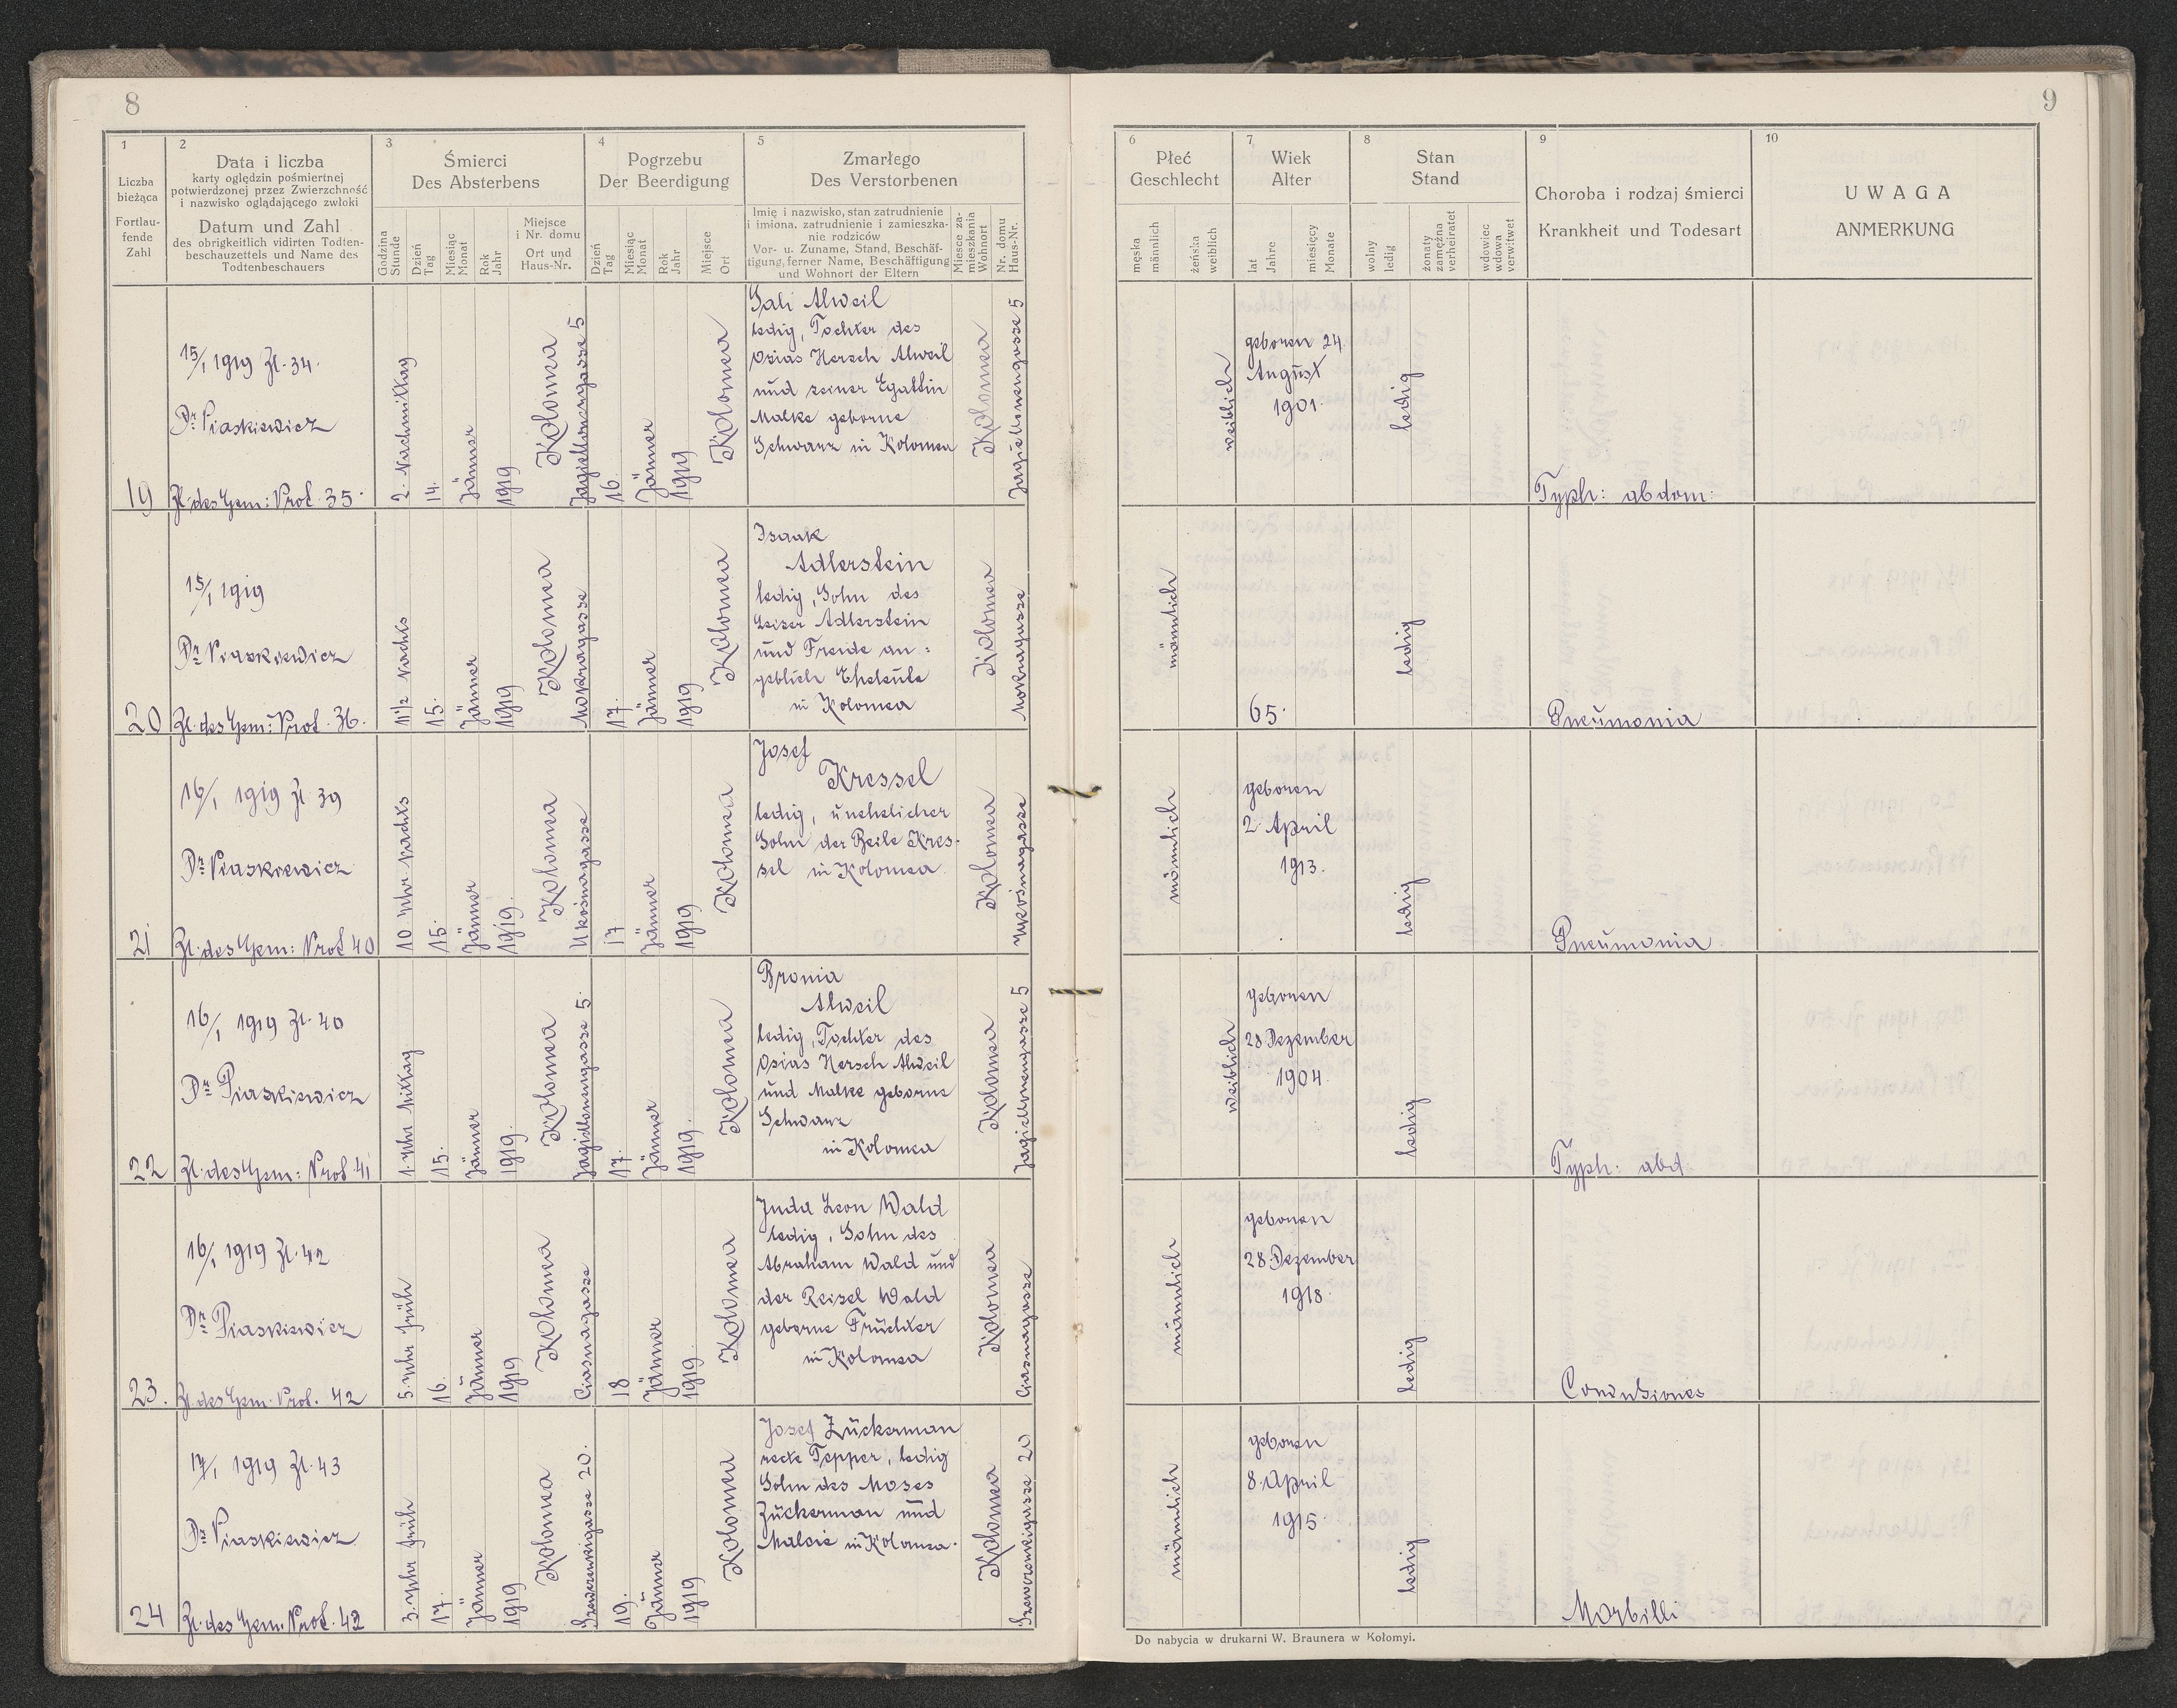 8
1
Liczba
bieżąca
Fortlau-
fende
Zahl
2
Data i liczba
karty oględzin pośmiertnej
potwierdzonej przez Zwierzchność
i nazwisko oglądającego zwłoki
Datum und Zahl
des obrigkeitlich vidirten Todten-
beschauzettels und Name des
Todtenbeschauers
3
Śmierci
Des Absterbens
Godzina
Stunde
Dzień
Tag
Miesiąc
Monat
Rok
Jahr
Miejsce
i Nr. domu
Ort und
Haus-Nr.
4
Pogrzebu
Der Beerdigung
Dzień
Tag
Miesiąc
Monat
Rok
Jahr
Miejsce
Ort
5
Zmarłego
Des Verstorbenen
Imię i nazwisko, stan zatrudnienie
i imiona, zatrudnienie i zamieszka-
nie rodziców
Vor- u. Zuname, Stand, Beschäf-
tigung, ferner Name, Beschäftigung
und Wohnort der Eltern
Miesce za-
mieszkania
Wohnort
Nr. domu
Haus-Nr.
19
15/1 1919 Zl. 34.
Dr Piaskiewicz
Zl. des Gem: Prot. 35.
2. Nachmittag
14.
Jänner
1919
Kolomea
Jagiellonengasse 5
16.
Jänner
1919
Kolomea
Sali Alweil
ledig, Tochter des
Osias Hersch Alweil
und seiner Egattin
Malke geborne
Schwarz in Kolomea
Kolomea
Jagiellonengasse 5
20
15/1 1919
Dr Piaskiewicz
Zl. des Gem: Prot. 36.
11 1/2 Nachts
15.
Jänner
1919
Kolomea
Mokragasse
17.
Jänner
1919
Kolomea
Isaak
Adlerstein
ledig, Sohn des
Leiser Adlerstein
und Freide an=
geblich Eheleute
in Kolomea
Kolomea
Mokragasse
21
16/1 1919 Zl. 39
Dr Piaskiewicz
Zl. des Gem: Prot 40
10 Uhr Nachts
15.
Jänner
1919.
Kolomea
Ukośnagasse
17
Jänner
1919
Kolomea
Josef
Kressel
ledig, unehelicher
Sohn der Beile Kres-
sel in Kolomea
Kolomea
Ukośnagasse
22
16/1 1919 Zl. 40
Dr Piaskiewicz
Zl. des Gem: Prot 41
1. Uhr Mittag
15.
Jänner
1919.
Kolomea
Jagiellonengasse 5.
17.
Jänner
1919.
Kolomea
Bronia
Alweil
ledig, Tochter des
Osias Hersch Alweil
und Malke geborne
Schwarz
in Kolomea
Kolomea
Jagiellonengasse 5
23.
16/1 1919 Zl. 42
Dr Piaskiewicz
Zl. des Gem. Prot. 42
5. Uhr früh
16.
Jänner
1919
Kolomea
Ciasnagasse
18
Jänner
1919.
Kolomea
Juda Leon Wald
ledig, Sohn des
Abraham Wald und
der Reisel Wald
geborne Früchter
in Kolomea
Kolomea
Ciasnagasse
24
17/1 1919 Zl. 43
Dr Piaskiewicz
Zl. des Gem. Prot. 42
3. Uhr früh
17.
Jänner
1919
Kolomea
Szewczenkigasse 20.
19.
Jänner
1919
Kolomea
Josef Zückerman
recte Tepper, ledig
Sohn des Moses
Zückerman und
Malcie in Kolomea.
Kolomea
Szewczenkigasse 20
9
6
Płeć
Geschlecht
męska
männlich
żeńska
weiblich
7
Wiek
Alter
lat
Jahre
miesięcy
Monate
8
Stan
Stand
wolny
ledig
żonaty
zamężna
verheiratet
wdowiec
wdowa
verwitwet
9
Choroba i rodzaj śmierci
Krankheit und Todesart
10
UWAGA
ANMERKUNG
weiblich
geboren 24.
August
1901.
ledig
Typh: abdom:
männlich
65.
ledig
Pneumonia
männlich
geboren
2. April
1913.
ledig
Pneumonia
weiblich
geboren
28 Dezember
1904.
ledig
Typh: abd
männlich
geboren
28. Dezember
1918.
ledig
Convulsiones
männlich
geboren
8. April
1915.
ledig
Morbilli
Do nabycia w drukarni W. Braunera w Kołomyi.